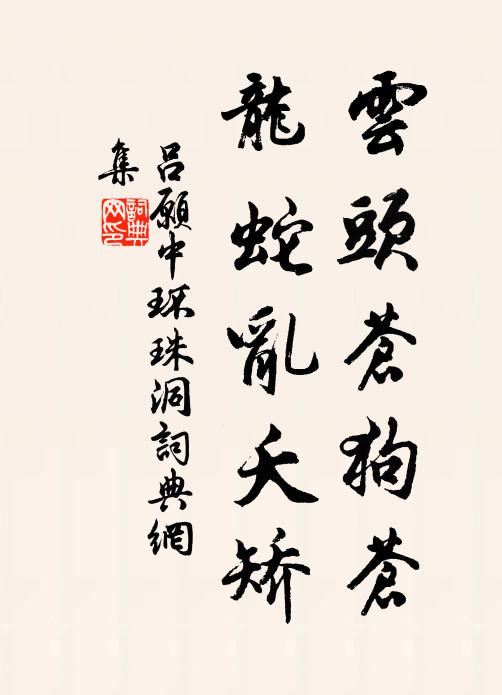 雲頭蒼狗蒼
龍蛇亂夭矯
吕願中环珠洞詞典網
集
詞典网印